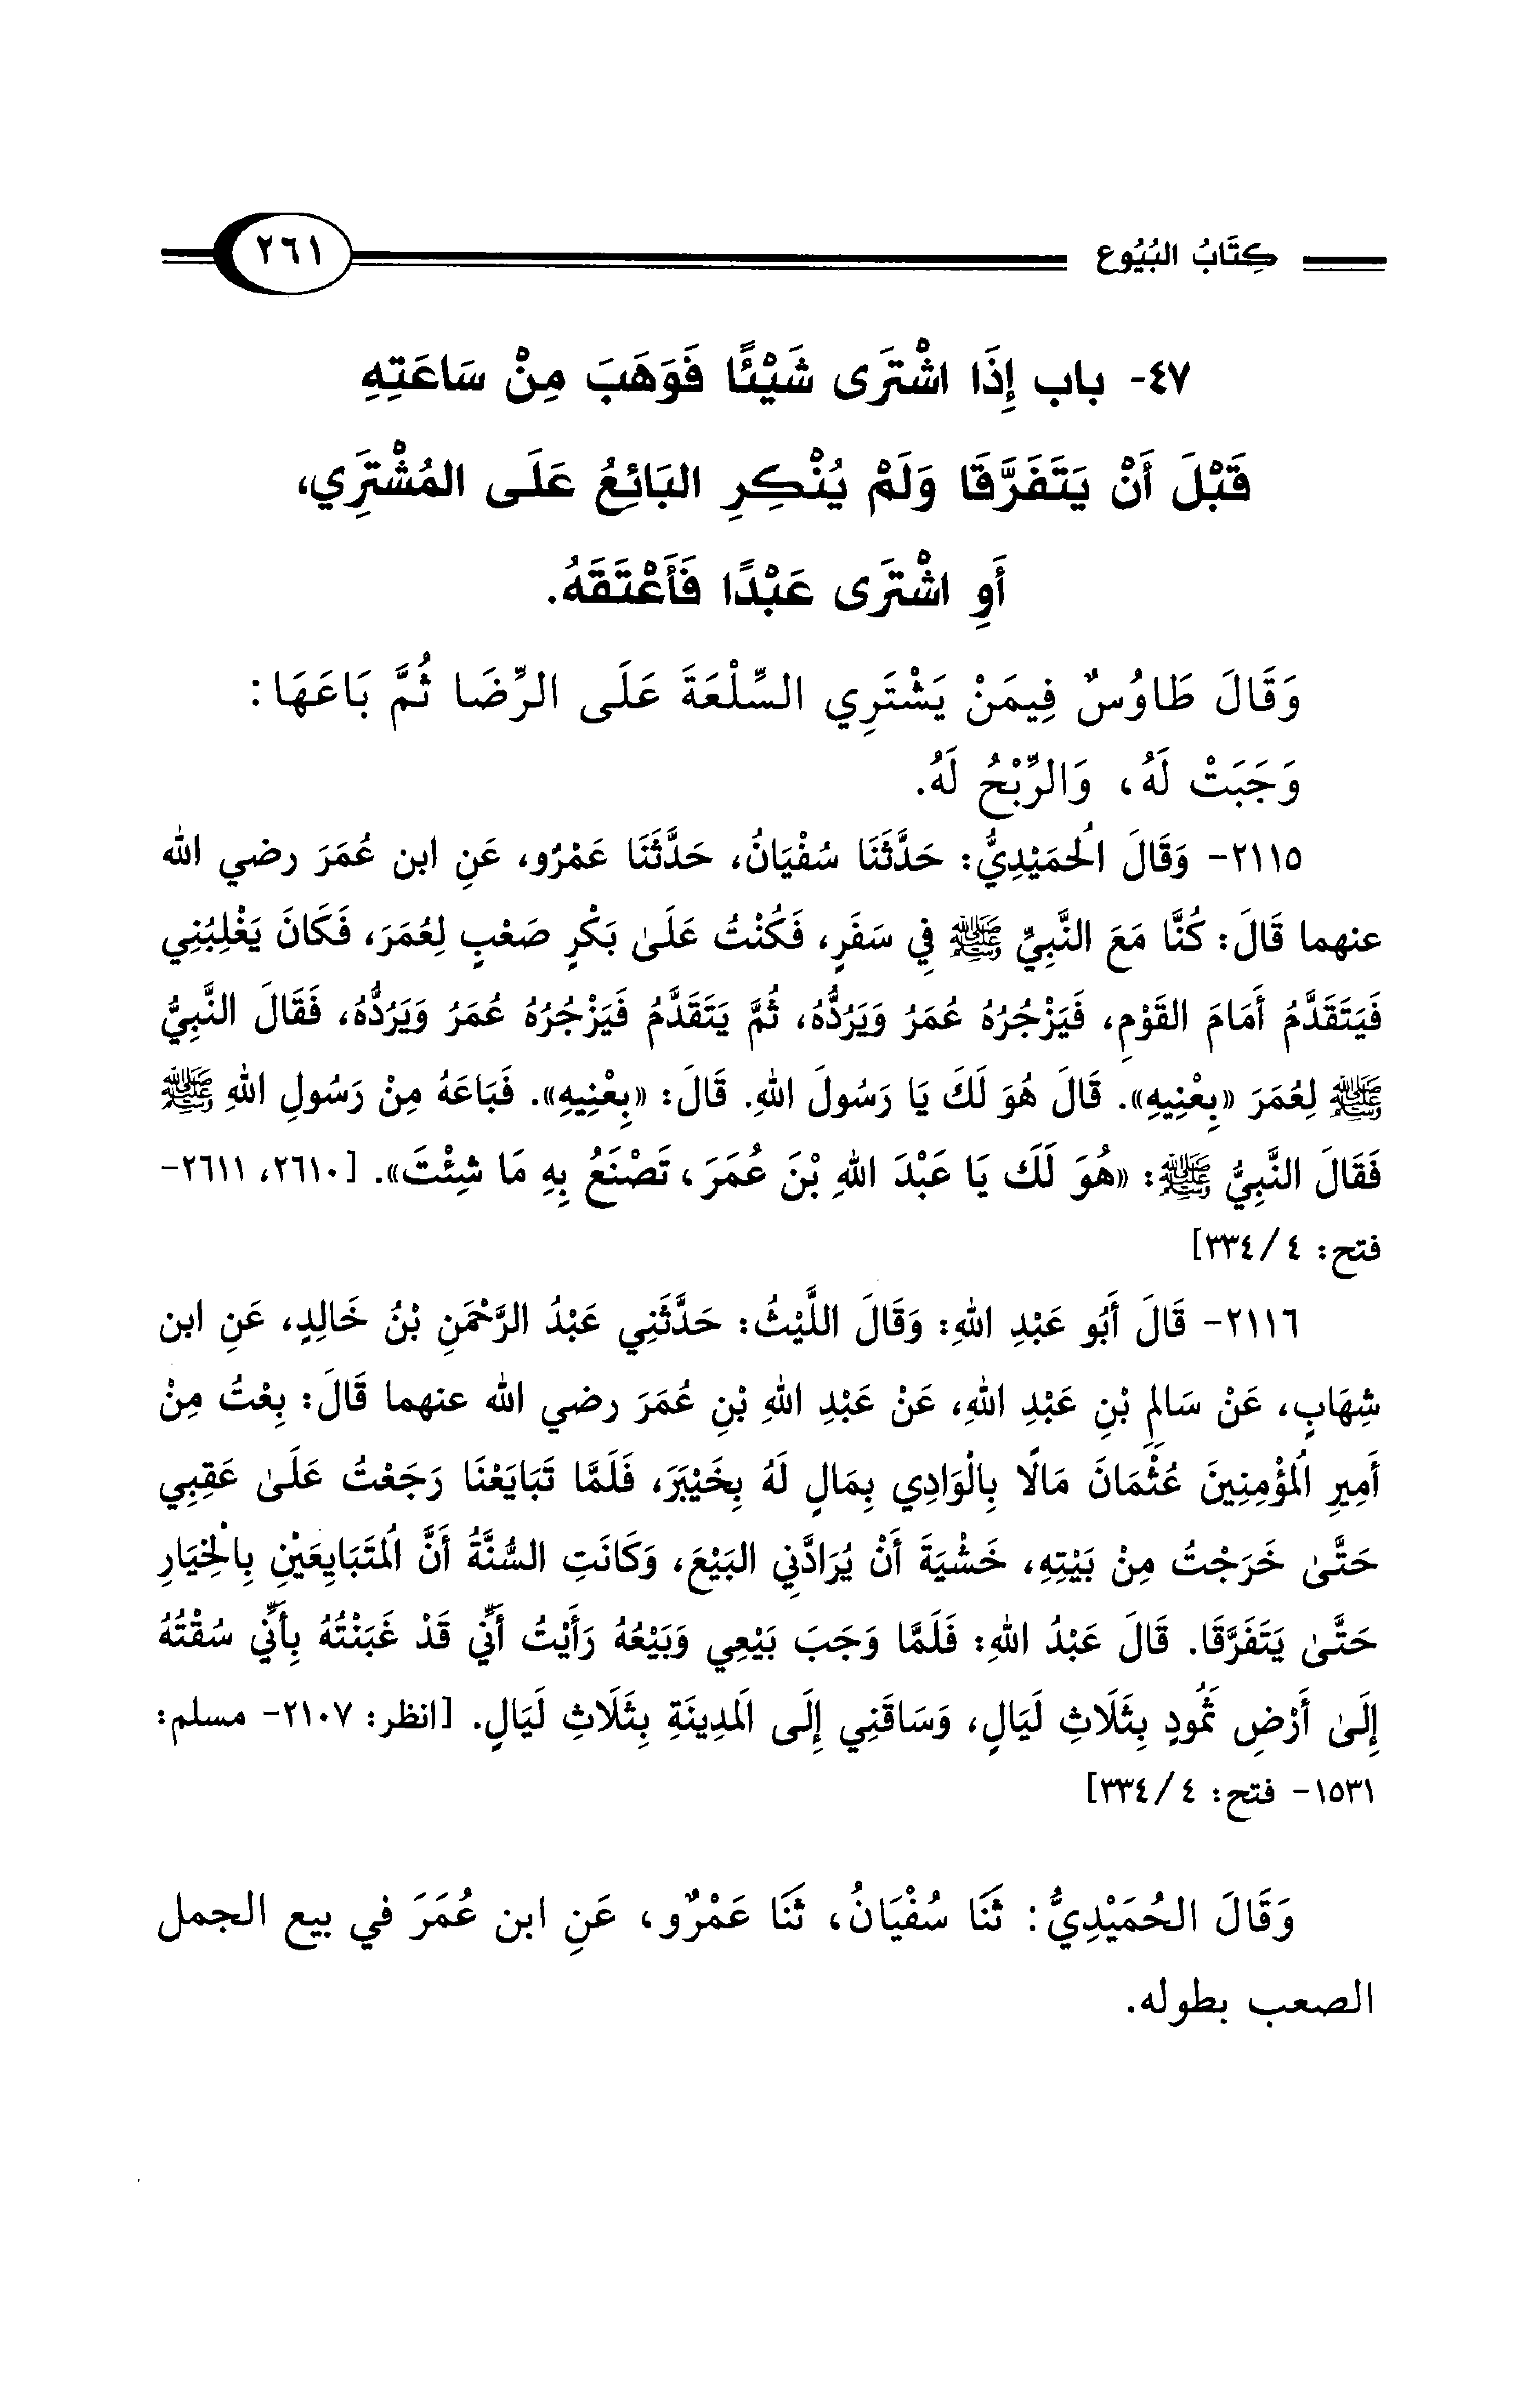 كِتَابُ البُيُوع ٢٦١
٤٧- باب إِذَا اشْتَرَى شَيْئًا فَوَهَبَ مِنْ سَاعَتِهِ
قَبْلَ أَنْ يَتَفَرَّقَا وَلَمْ يُنْكِرِ البَائِعُ عَلَى المُشْتَرِي،
أَوِ اشْتَرَى عَبْدًا فَأَعْتَقَهُ.
وَقَالَ طَاوُسٌ فِيمَنْ يَشْتَرِي السِّلْعَةَ عَلَى الرِّضَا ثُمَّ بَاعَهَا:
وَجَبَتْ لَهُ، وَالرِّبْحُ لَهُ.
٢١١٥- وَقَالَ الُحمَيْدِيُّ: حَدَّثَنَا سُفْيَانُ، حَدَّثَنَا عَمْرٌو، عَنِ ابن عُمَرَ رضي الله
عنهما قَالَ: كُنَّا مَعَ النَّبِيِّ ﷺ فِي سَفَرٍ، فَكُنْتُ عَلَىٰ بَكْرٍ صَعْبٍ لِعُمَرَ، فَكَانَ يَغْلِبُنِي
فَيَتَقَدَّمُ أَمَامَ القَوْمِ، فَيَزْجُرُهُ عُمَرُ وَيَرُدُّهُ، ثُمَّ يَتَقَدَّمُ فَيَزْجُرُهُ عُمَرُ وَيَرُدُّهُ، فَقَالَ النَّبِيُّ
ﷺ لِعُمَرَ «بِعْنِيهِ». قَالَ هُوَ لَكَ يَا رَسُولَ اللهِ. قَالَ: «بِعْنِيهِ». فَبَاعَهُ مِنْ رَسُولِ اللهِ ﷺ
فَقَالَ النَّبِيُّ ﷺ: «هُوَ لَكَ يَا عَبْدَ اللهِ بْنَ عُمَرَ، تَصْنَعُ بِهِ مَا شِئْتَ». [٢٦١٠، ٢٦١١-
فتح: ٤/ ٣٣٤]
٢١١٦- قَالَ أَبُو عَبْدِ اللهِ: وَقَالَ اللَّيْثُ: حَدَّثَنِي عَبْدُ الرَّحْمَنِ بْنُ خَالِدٍ، عَنِ ابن
شِهَابٍ، عَنْ سَالِمِ بْنِ عَبْدِ اللهِ، عَنْ عَبْدِ اللهِ بْنِ عُمَرَ رضي الله عنهما قَالَ: بِعْتُ مِنْ
أَمِيرِ الُمؤْمِنِينَ عُثْمَانَ مَالًا بِالْوَادِي بِمَالٍ لَهُ بِخَيْبَرَ، فَلَمَّا تَبَايَعْنَا رَجَعْتُ عَلَىٰ عَقِبِي
حَتَّىٰ خَرَجْتُ مِنْ بَيْتِهِ، خَشْيَةَ أَنْ يُرَادَّنِي البَيْعَ، وَكَانَتِ السُّنَّةُ أَنَّ الُمتَبَايِعَيْنِ بِالْخِيَارِ
حَتَّىٰ يَتَفَرَّقَا. قَالَ عَبْدُ اللهِ: فَلَمَّا وَجَبَ بَيْعِي وَبَيْعُهُ رَأَيْتُ أَنِّي قَدْ غَبَنْتُهُ بِأَنِّي سُقْتُهُ
إِلَىٰ أَرْضِ ثَمُودٍ بِثَلَاثِ لَيَالٍ، وَسَاقَنِي إِلَى الَمدِينَةِ بِثَلَاثِ لَيَالٍ. [انظر: ٢١٠٧- مسلم:
١٥٣١- فتح: ٤/ ٣٣٤]
وَقَالَ الحُمَيْدِيُّ: ثَنَا سُفْيَانُ، ثَنَا عَمْرٌو، عَنِ ابن عُمَرَ في بيع الجمل
الصعب بطوله.